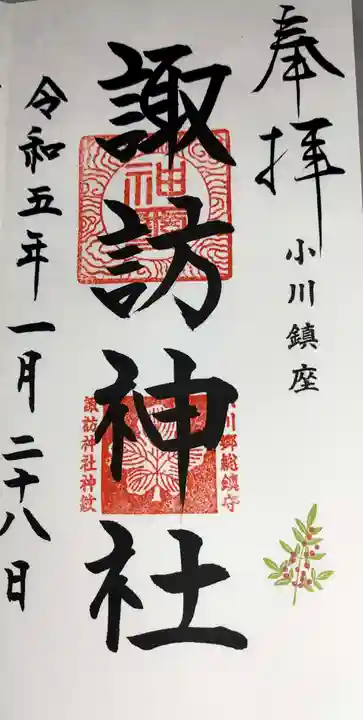 奉拝
小川鎮座
諏訪神社
川郷総鎮守
諏訪神社神紋
令和五年一月二十八日